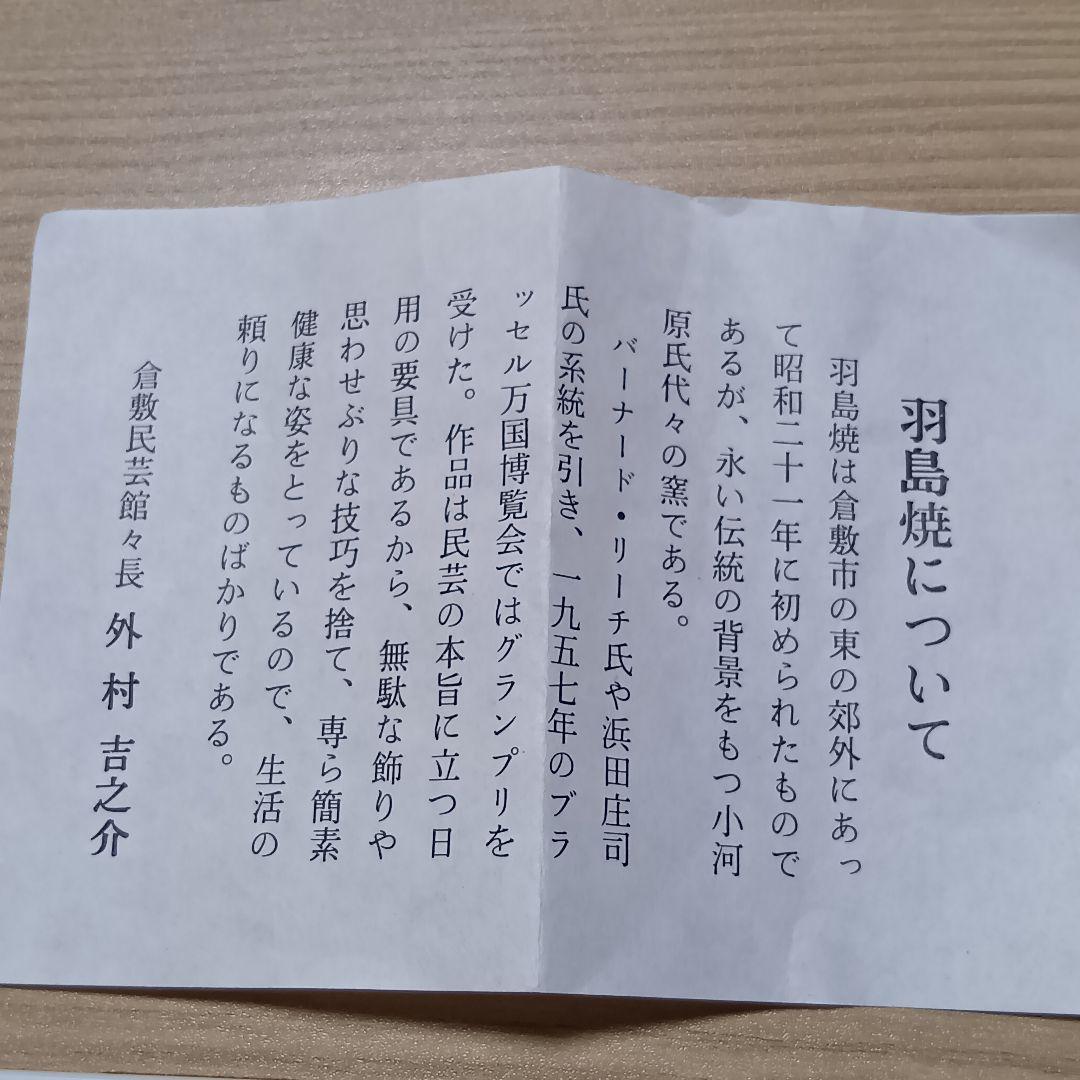 羽島焼について
羽島焼は倉敷市の東の郊外にあっ
て昭和二十一年に初められたもので
あるが、永い伝統の背景をもつ小河
原氏代々の窯である。
バーナード・リーチ氏や浜田庄司
氏の系統を引き、一九五七年のブラ
ッセル万国博覧会ではグランプリを
受けた。作品は民芸の本旨に立つ日
用の要具であるから、無駄な飾りや
思わせぶりな技巧を捨て、専ら簡素
健康な姿をとっているので、生活の
頼りになるものばかりである。
倉敷民芸館々長 外村吉之介